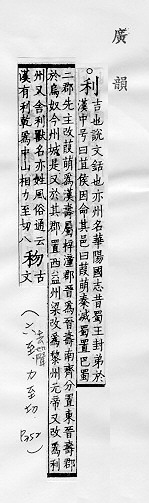 廣韻
利吉也說文銛也亦州名華陽國志昔蜀王封弟於
漢中号曰苴侯因命其邑曰葭萌秦滅蜀置巴蜀
二郡先主改葭萌為漢壽屬梓潼郡晉為晉壽南齊分置東晉壽郡
於烏奴今州城是又於其郡置西益州梁改為黎州元帝又改為利
州又舍利獸名亦姓風俗通云
漢有利乾為中山相力至切八 𥝢古文
去聲
六至 力至切
P352